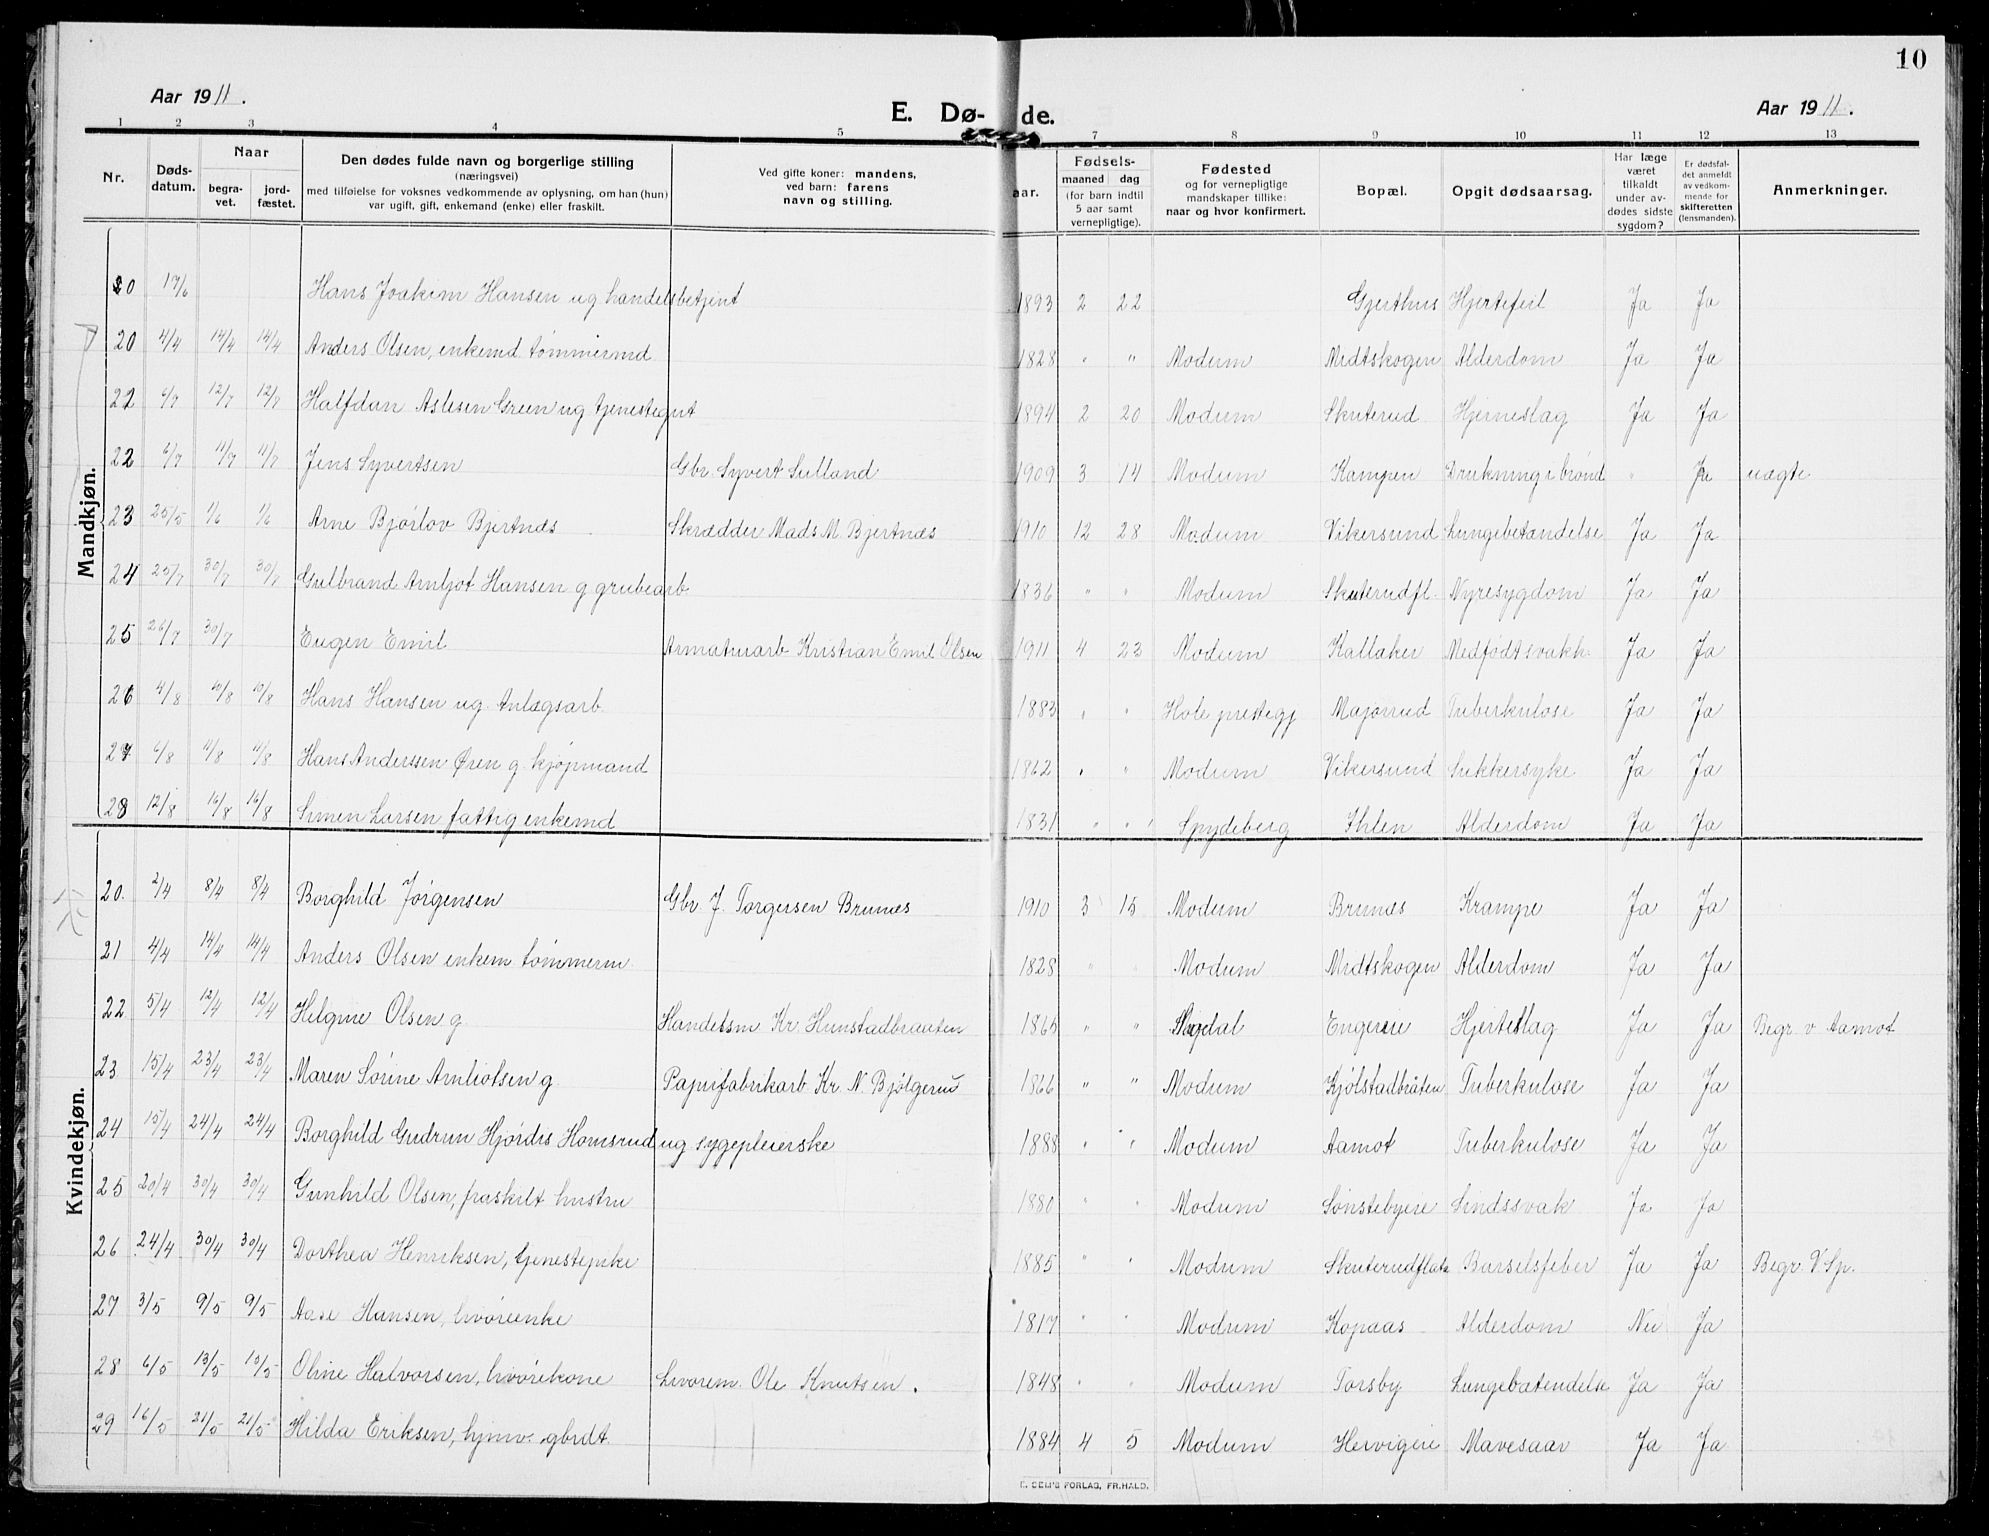 10
Aar 1911.
E. Dø-
de.
Aar 1911.
1 2 3 4 5 7 8 9 10 11 12 13
Nr.
Døds-
datum.
Naar
begra-
vet.
jord-
fæstet.
Den dødes fulde navn og borgerlige stilling
(næringsvei)
med tilføielse for voksnes vedkommende av oplysning, om han (hun)
var ugift, gift, enkemand (enke) eller fraskilt.
Ved gifte koner: mandens,
ved barn: farens
navn og stilling.
aar.
Fødsels-
maaned dag
(for barn indtil
5 aar samt
vernepligtige).
Fødested
og for vernepligtige
mandskaper tillike:
naar og hvor konfirmert.
Bopæl.
Opgit dødsaarsag.
Har læge
været
tilkaldt
under av-
dødes sidste
sygdom?
Er dødsfal-
det anmeldt
av vedkom-
mende for
skifteretten
(lensmanden).
Anmerkninger.
Mandkjøn.
20 17/6 Hans Joakim Hansen ug handelsbetjent 1893 2 22 Gjerthus Hjertefeil Ja Ja
20 4/4 14/4 14/4 Anders Olsen, enkemd tømmermd 1828 " " Modum Midtskogen Alderdom Ja Ja
21 6/7 12/7 12/7 Halfdan Aslesen Green ug tjenestegut 1894 2 20 Modum Skuterud Hjerneslag Ja Ja
22 6/7 11/7 11/7 Jens Syvertsen Gbr. Syvert Sulland 1909 3 14 Modum Kampen Drukning i brønd " Ja uægte
23 25/5 1/6 1/6 Arne Bjørlov Bjertnæs Skrædder Mads M. Bjertnæs 1910 12 28 Modum Vikersund Lungebetændelse Ja Ja
24 25/7 30/7 30/7 Gulbrand Arnljot Hansen g grubearb. 1836 " " Modum Skuterudfl. Nyresygdom Ja Ja
25 26/7 30/7 Eugen Emil Armaturarb Kristian Emil Olsen 1911 4 23 Modum Kallaker Medfødt svakh. Ja Ja
26 4/8 10/8 10/8 Hans Hansen ug. Anlægsarb. 1883 " " Hole prestegj Majorrud Tuberkulose Ja Ja
27 6/8 11/8 11/8 Hans Anderssen Øren g. kjøpmand 1862 " " Modum Vikersund Sukkersyke Ja Ja
28 12/8 16/8 16/8 Simen Larsen fattig enkemd 1831 " " Spydeberg Ihlen Alderdom Ja Ja
Kvindekjøn.
20. 2/4 8/4 8/4 Borghild Jørgensen Gbr. J. Torgersen Brunæs 1910 3 15 Modum Brunæs Krampe Ja Ja
21 4/4 14/4 14/4 Anders Olsen enkem tømmerm. 1828 " " Modum Midtskogen Alderdom Ja Ja
22 5/4 12/4 12/4 Helgine Olsen g. Handelsm. Kr. Hunstadbraaten 1865 " " Sigdal Engerie Hjerteslag Ja Ja Begr. v. Aamot
23 15/4 23/4 23/4 Maren Sørine Arnliotsen g. Papirfabrikarb. Kr. N. Bjølgerud 1866 " " Modum Kjølstadbråten Tuberkulose Ja Ja
24 15/4 24/4 24/4 Borghild Gudrun Hjørdis Homsrud ug sygepleierske 1888 " " Modum Aamot Tuberkulose Ja Ja
25 20/4 30/4 30/4 Gunhild Olsen, fraskilt hustru 1880 " " Modum Sønstebyeie Sindssvak Ja Ja
26 24/4 30/4 30/4 Dorthea Henriksen, tjenestepike 1885 " " Modum Skuterudflata Barselsfeber Ja Ja Begr. V. Sp.
27 3/5 9/5 9/5 Aase Hansen, livøreenke 1817 " " Modum Kopaas Alderdom Nei Ja
28 6/5 13/5 13/5 Oline Halvorsen, livørekone Livørem. Ole Knutsen. 1848 " " Modum Torsby Lungebetændelse Ja Ja
29 16/5 21/5 21/5 Hilda Eriksen, hjmv. gbrdt. 1884 4 5 Modum Hervigeie Mavesaar Ja Ja
E. SEM'S FORLAG, FR.HALD.